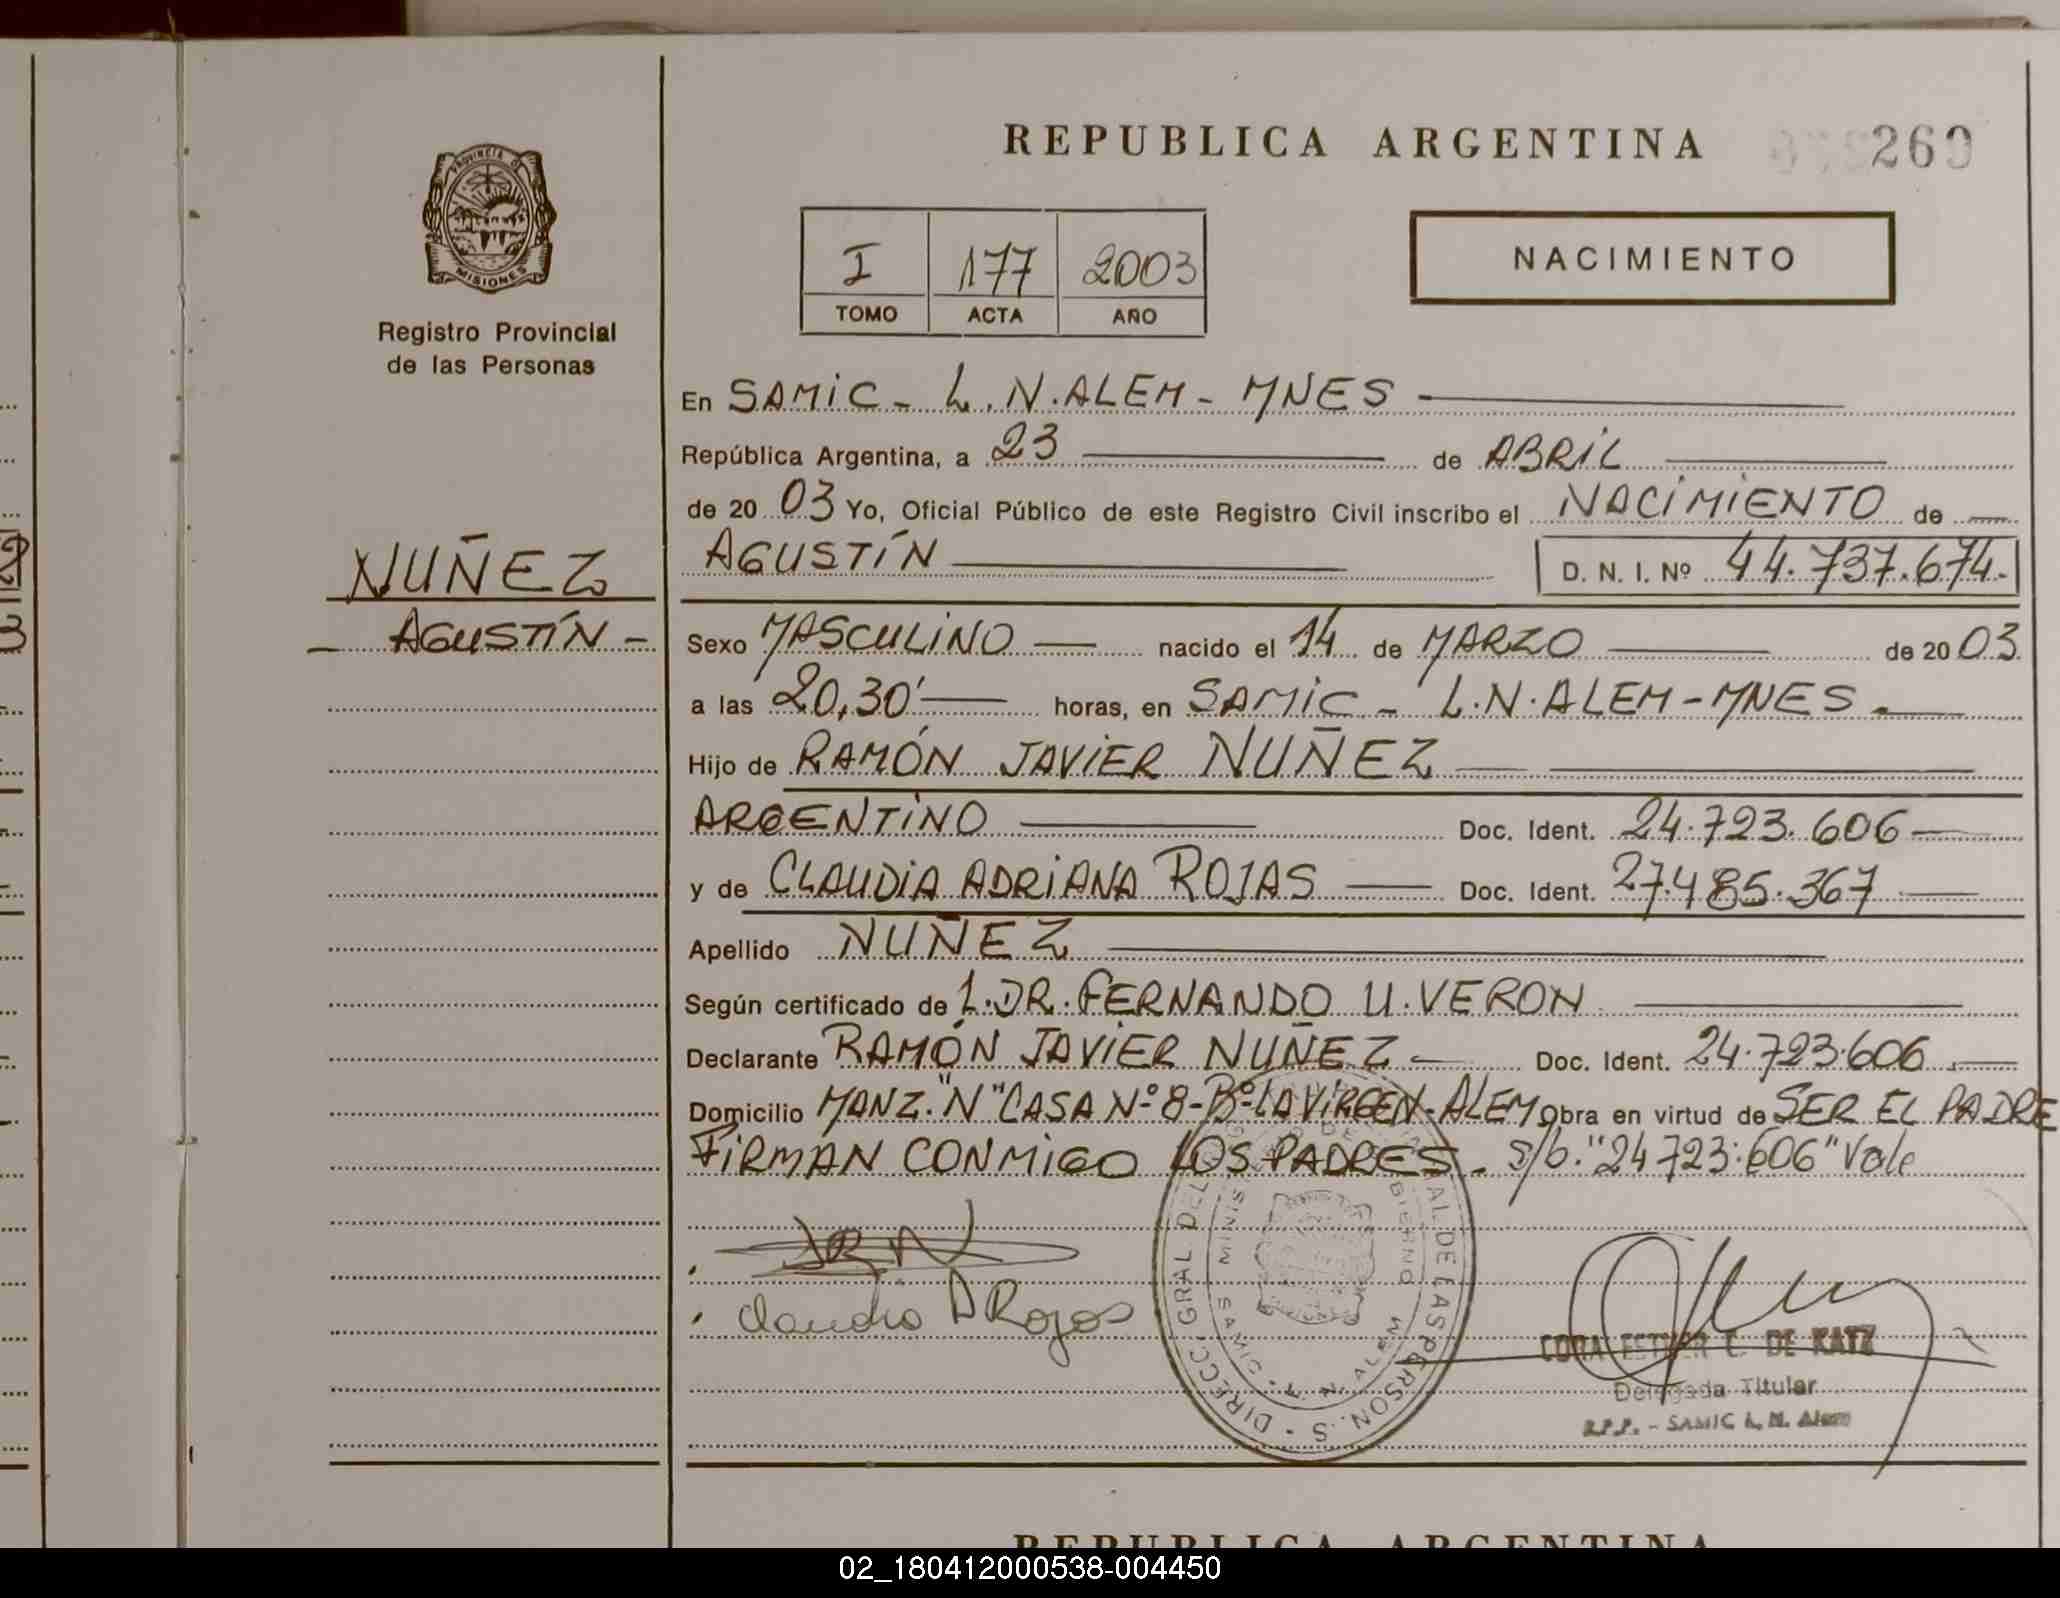 REPUBLICA ARGENTINA
260
PROVINCIA DE
MISIONES
Registro Provincial
de las Personas
I 177 2003
TOMO ACTA AÑO
NACIMIENTO
En SAMIC - L.N.ALEM - MNES
República Argentina, a 23 de ABRIL
de 20 03 Yo, Oficial Público de este Registro Civil inscribo el NACIMIENTO de
NUÑEZ
AGUSTÍN
AGUSTÍN D. N. I. Nº 44.737.674.
Sexo MASCULINO nacido el 14 de MARZO de 20 03
a las 20,30' horas, en SAMIC - L.N.ALEM - MNES.
Hijo de RAMÓN JAVIER NUÑEZ
ARGENTINO Doc. Ident. 24.723.606
y de CLAUDIA ADRIANA ROJAS Doc. Ident. 27.485.367
Apellido NUÑEZ
Según certificado de L.DR. FERNANDO U. VERON
Declarante RAMÓN JAVIER NUÑEZ Doc. Ident. 24.723.606
Domicilio MANZ. "N" CASA Nº 8 - Bº LA VIRGEN - ALEM Obra en virtud de SER EL PADRE
FIRMAN CONMIGO LOS PADRES. S/b. "24723.606" Vale
Claudia A Rojas
SAMIC L. N. ALEM
CORA ESTHER C. DE KATZ
Delegada Titular
R.P.P. - SAMIC L. N. Alem
REPUBLICA ARGENTINA
02_180412000538-004450